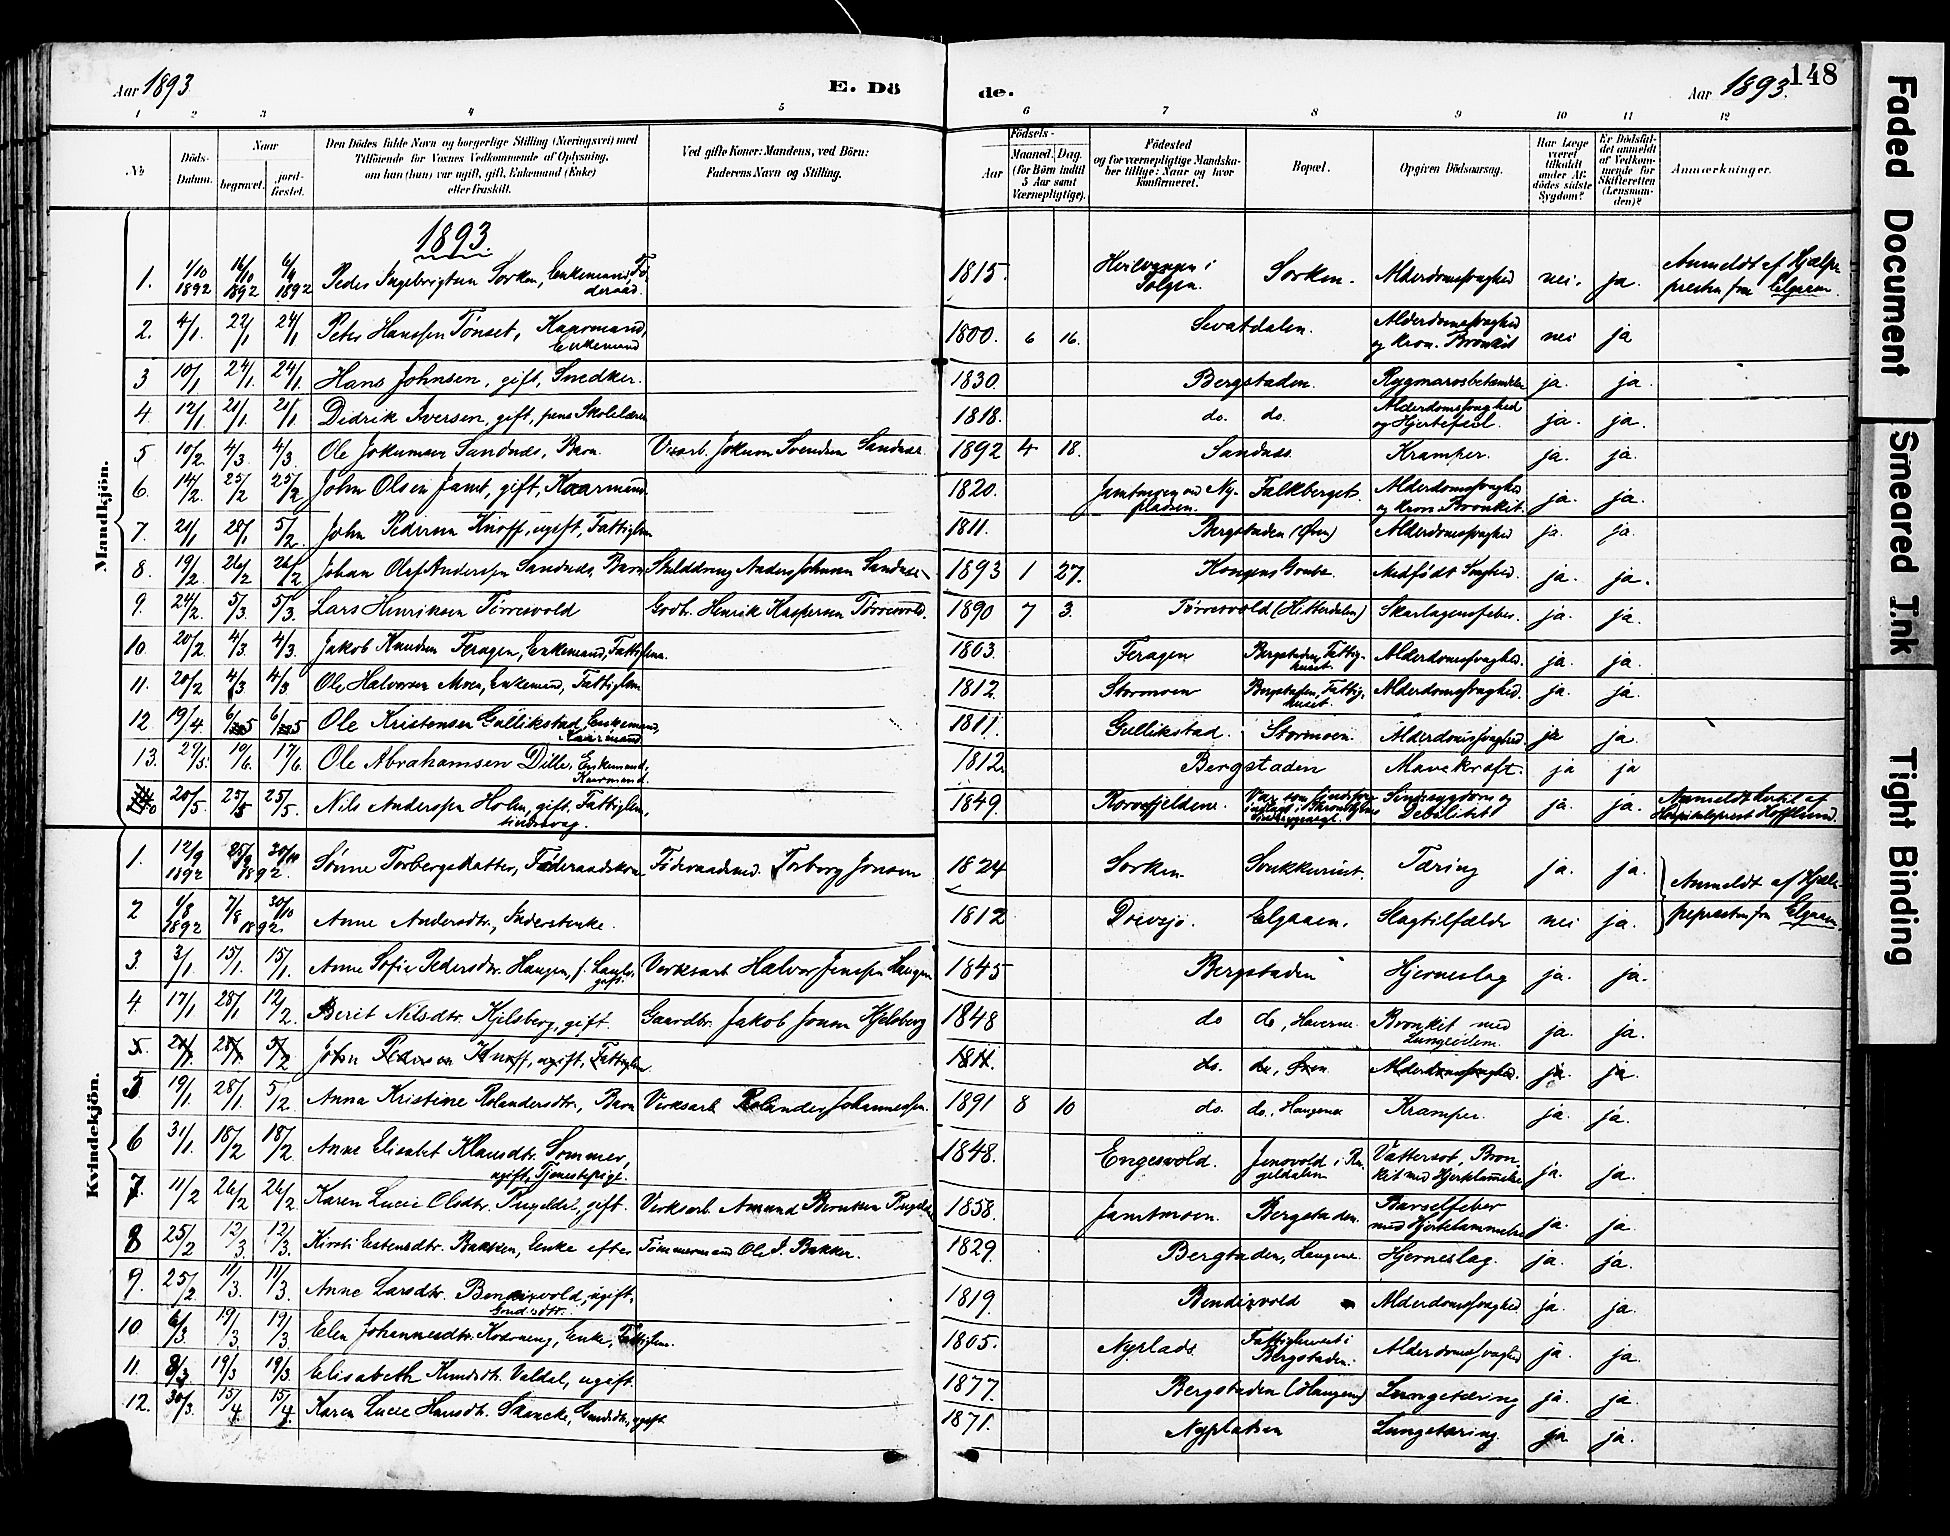 Aar 1893.
E. Dö
de.
Aar 1893.
148
1 2 3 4 5 6 7 8 9 10 11 12
No
Döds-Datum.
Naar
begravet.
jord-fæstet.
Den Dödes fulde Navn og borgerlige Stilling (Næringsvei) med
Tilföiende for Voxnes Vedkommende af Oplysning,
om han (hun) var ugift, gift, Enkemand (Enke)
eller fraskilt.
Ved gifte Koner: Mandens, ved Börn:
Faderens Navn og Stilling.
Födsels-
Aar
Maaned. Dag.
(for Börn indtil
5 Aar samt
Værnepligtige).
Födested
og for værnepligtige Mandska-
ber tillige: Naar og hvor
konfirmeret.
Bopæl.
Opgiven Dödsaarsag.
Har Læge
været
tilkaldt
under Af-
dödes sidste
Sygdom?
Er Dödsfal-
det anmeldt
af Vedkom-
mende for
Skifteretten
(Lensman-
den)?
Anmærkninger.
Mandkjön.
1893.
1. 1/10 1892 16/10 1892 1892 Peder Ingebrigtsen Sorken, Enkemand, Fö-
deraad. 1815 i Tolgen. Sorken. Alderdomssvaghed nei. ja. Anmeldt af Hjælpe-
presten fra Elgaaen.
2. 4/1. 22/1 24/1 Peter Hanssen Tönset, Kaarmand,
Enkemand 1800. 6 16. Sevatdalen. Alderdomssvaghed
og kron. Bronkit nei ja
3 10/1 24/1. 24/1. Hans Johnsen, gift, Snedker. 1830. Bergstaden. ja. ja.
4 12/1 21/1. 21/1 Didrik Iversen, gift, pens Skolelærer 1818. do. do. Alderdomssvaghed
og Hjertefeil. ja. ja.
5 10/2. 4/3 4/3. Ole Jokumsen Sandnes, Barn. Jokum Svendsen Sandnes. 1892 4 18. Sandnes. Kramper. ja. ja.
6. 14/2. 25/2 25/2 John Olsen Jamt, gift, Kaarmand. 1820. Jamtmoen ved Ny-
pladsen. Falkberget. Alderdomssvaghed
og kron Bronkit. ja. ja.
7. 21/1 28/1 5/2. John Pedersen Knoff, ugift, Fattiglem 1811. Bergstaden (Ören) Alderdomssvaghed ja. ja.
8. 19/2. 26/2 26/2 Johan Olaf Anderssen Sandnes, Barn Anders Johnsen Sandnes. 1893 1 27. Kongens Grube. Medfödt Svaghed. ja. ja.
9. 24/2. 5/3. 5/3. Lars Henriksen Törresvold Gdbr. Henrik Kaspersen Törresvold. 1890 7 3. Törresvold (Hitterdalen) Skarlagensfeber. ja. ja.
10. 20/2 4/3. 4/3. Jakob Knudsen Feragen, Enkemand, Fattiglem. 1803. Feragen Bergstaden, Fattig-
huset. Alderdomssvaghed. ja. ja.
11. 20/2 4/3 4/3 Ole Halvorsen Moen, Enkemand, Fattiglem 1812. Stormoen Bergstaden, Fattig-
huset. Alderdomssvaghed. ja. ja.
12 19/4 6/5 6/5 Ole Kristensen Gullikstad, Enkemand,
Kaarmand. 1811. Gullikstad. Stormoen. Alderdomssvaghed. ja ja.
13. 27/5. 17/6. 17/6. Ole Abrahamsen Dille, Enkemand,
Kaarmand. 1812. Bergstaden Mavekræft. ja ja
20/5 25/5 25/5. Nils Anderssen Holm, gift, Fattiglem,
sindssvag. 1849. Rorosfjeldene. Sindssygdom og
Debilitet ja. ja. Anmeldt hertil af
Hospitalsprest Hofflund.
Kvindekjön.
1. 12/9 1892 25/9 1892. 30/10 Sönne Torbergsdatter, Föderaadskone Föderaadsmd. Torberg Jonsen 1824 Sorken. Tæring ja. ja. Anmeldt af Hjælpe-
presten fra Elgaaen.
2 1/8 1892 7/8 30/10 1892. Anne Andersdtr., Inderstenke. 1812 Drevsjö. Elgaaen. Slagtilfælde nei ja.
3. 3/1. 15/1. 15/1. Anne Sofie Pedersdtr. Haugen,
gift. Verksarb. Halvor Jenssen Haugen 1845 Bergstaden Hjerneslag ja. ja.
4. 17/1 28/1 12/2. Berit Nilsdtr. Kjelsberg, gift. Gaardbr. Jakob Jonsen Kjelsberg 1848 do do, Haverne. Bronkit med
Lungeödem. ja. ja.
5. 21/1. 28/1. 5/2 John Pedersen Knoff, ugift, Fattiglem 1811. do. do, Ören Alderdomssvaghed. ja ja
5 19/1. 28/1. 5/2. Anna Kristine Rolandersdtr., Barn Verksarb. Rolander Johannessen. 1891 8 10 do. do, Haugene Kramper. ja. ja.
6 31/1. 18/2 18/2. Anne Elisabet Klausdtr. Sommer,
ugift, Tjenestepige. 1848. Engesvold. Jensvold i Ru-
geldalen Vattersot, Bron-
kit med Hjertelammelse ja. ja.
7. 11/2 26/2 26/2 Karen Lucie Olsdtr. Rugeldal, gift. Verksarb. Amund Berntsen Rugeldal 1858. Jamtmoen. Bergstaden. Barselfeber
med Hjertelammelse ja. ja.
8 25/2 12/3 12/3. Kirsti Estensdtr. Bakken, Enke efter Tömmermand Ole J. Bakken. 1829. Bergstaden, Haugene. Hjerneslag. ja. ja.
9. 25/2 11/3. 11/3. Anne Larsdtr. Bendixvold, ugift,
Gaardsdtr. 1819. Bendixvold Alderdomssvaghed ja. ja.
10 6/3. 19/3 19/3 Elen Johannesdtr. Korneng, Enke, Fattiglem. 1805. Nyplads Fattighuset i
Bergstaden. Alderdomssvaghed ja. ja.
11. 8/3. 19/3 19/3. Elisabeth Knudsdtr. Valdal, ugift. 1877. Bergstaden (Haugene) Lungetæring ja. ja.
12. 30/3. 15/4 15/4 Karen Lucie Hansdtr. Skancke, Gaardsdtr., ugift. 1871. Nypladsen Lungetæring. ja ja.
Faded Document
Smeared Ink
Tight Binding